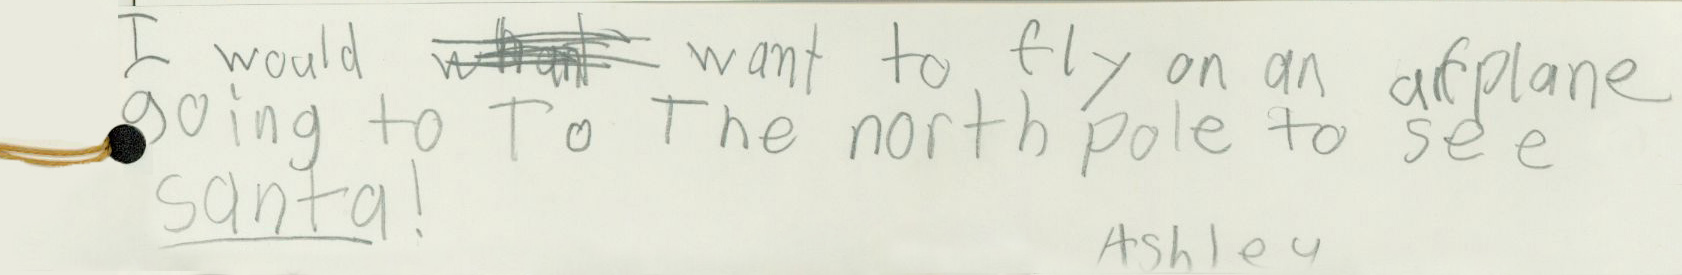 I would want to fly on an airplane
going to To The north pole to see
santa!
Ashley